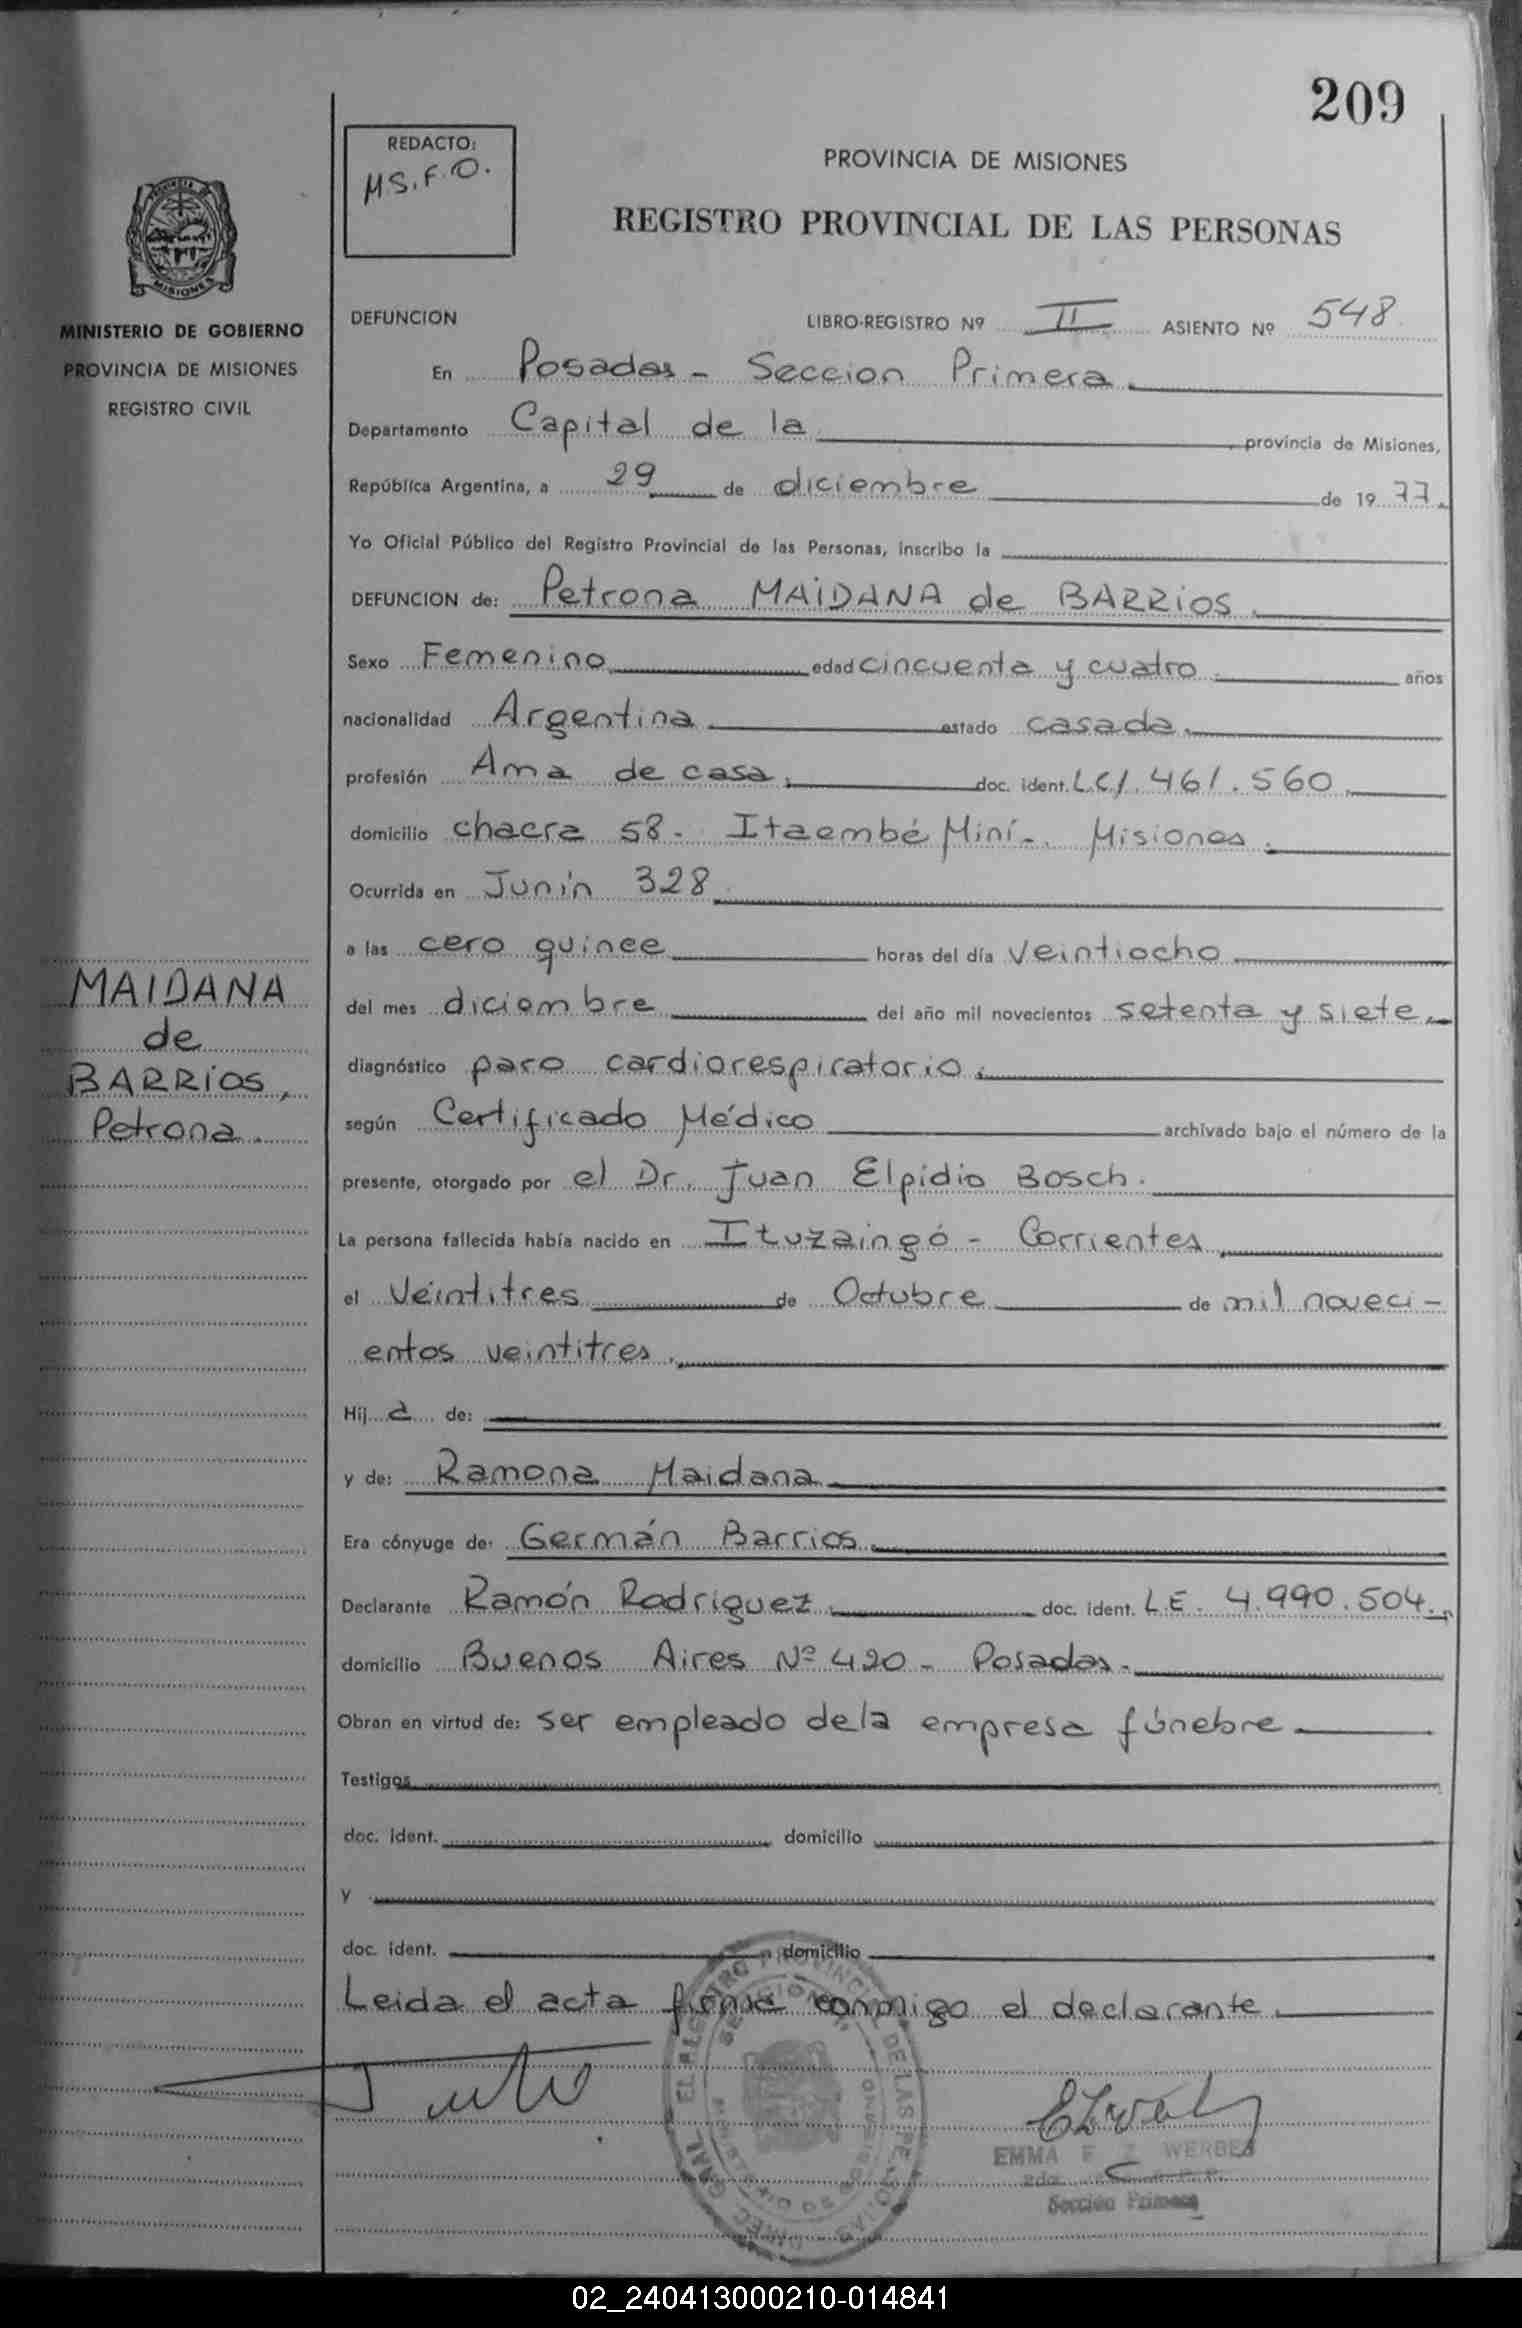 209
REDACTO:
M.S.F.O.
PROVINCIA DE MISIONES
REGISTRO PROVINCIAL DE LAS PERSONAS
MISIONES
MINISTERIO DE GOBIERNO
PROVINCIA DE MISIONES
REGISTRO CIVIL
DEFUNCION LIBRO-REGISTRO Nº II ASIENTO Nº 548
En Posadas - Seccion Primera.
Departamento Capital de la provincia de Misiones,
República Argentina, a 29 de diciembre de 1977.
Yo Oficial Público del Registro Provincial de las Personas, inscribo la
DEFUNCION de: Petrona MAIDANA de BARRIOS.
Sexo Femenino edad cincuenta y cuatro años
nacionalidad Argentina estado casada.
profesión Ama de casa. doc. ident. L.C. 1.461.560
domicilio chacra 58- Itaembé Miní-. Misiones.
Ocurrida en Junín 328
a las cero quince horas del día veintiocho
del mes diciembre del año mil novecientos setenta y siete.
diagnóstico paro cardiorespiratorio.
según Certificado Médico archivado bajo el número de la
presente, otorgado por el Dr. Juan Elpidio Bosch.
La persona fallecida había nacido en Ituzaingó - Corrientes
el Veintitres de Octubre de mil noveci-
entos veintitres.
Hija de:
y de: Ramona Maidana
Era cónyuge de: Germán Barrios
Declarante Ramón Rodriguez. doc. ident. L.E. 4.990.504.
domicilio Buenos Aires Nº 420 - Posadas.
Obran en virtud de: ser empleado dela empresa fúnebre
Testigos
doc. ident. domicilio
y
doc. ident. domicilio
Leida el acta firma conmigo el declarante.
MAIDANA
de
BARRIOS,
Petrona.
EMMA E. Z. WERBES
Sección Primera
02_240413000210-014841